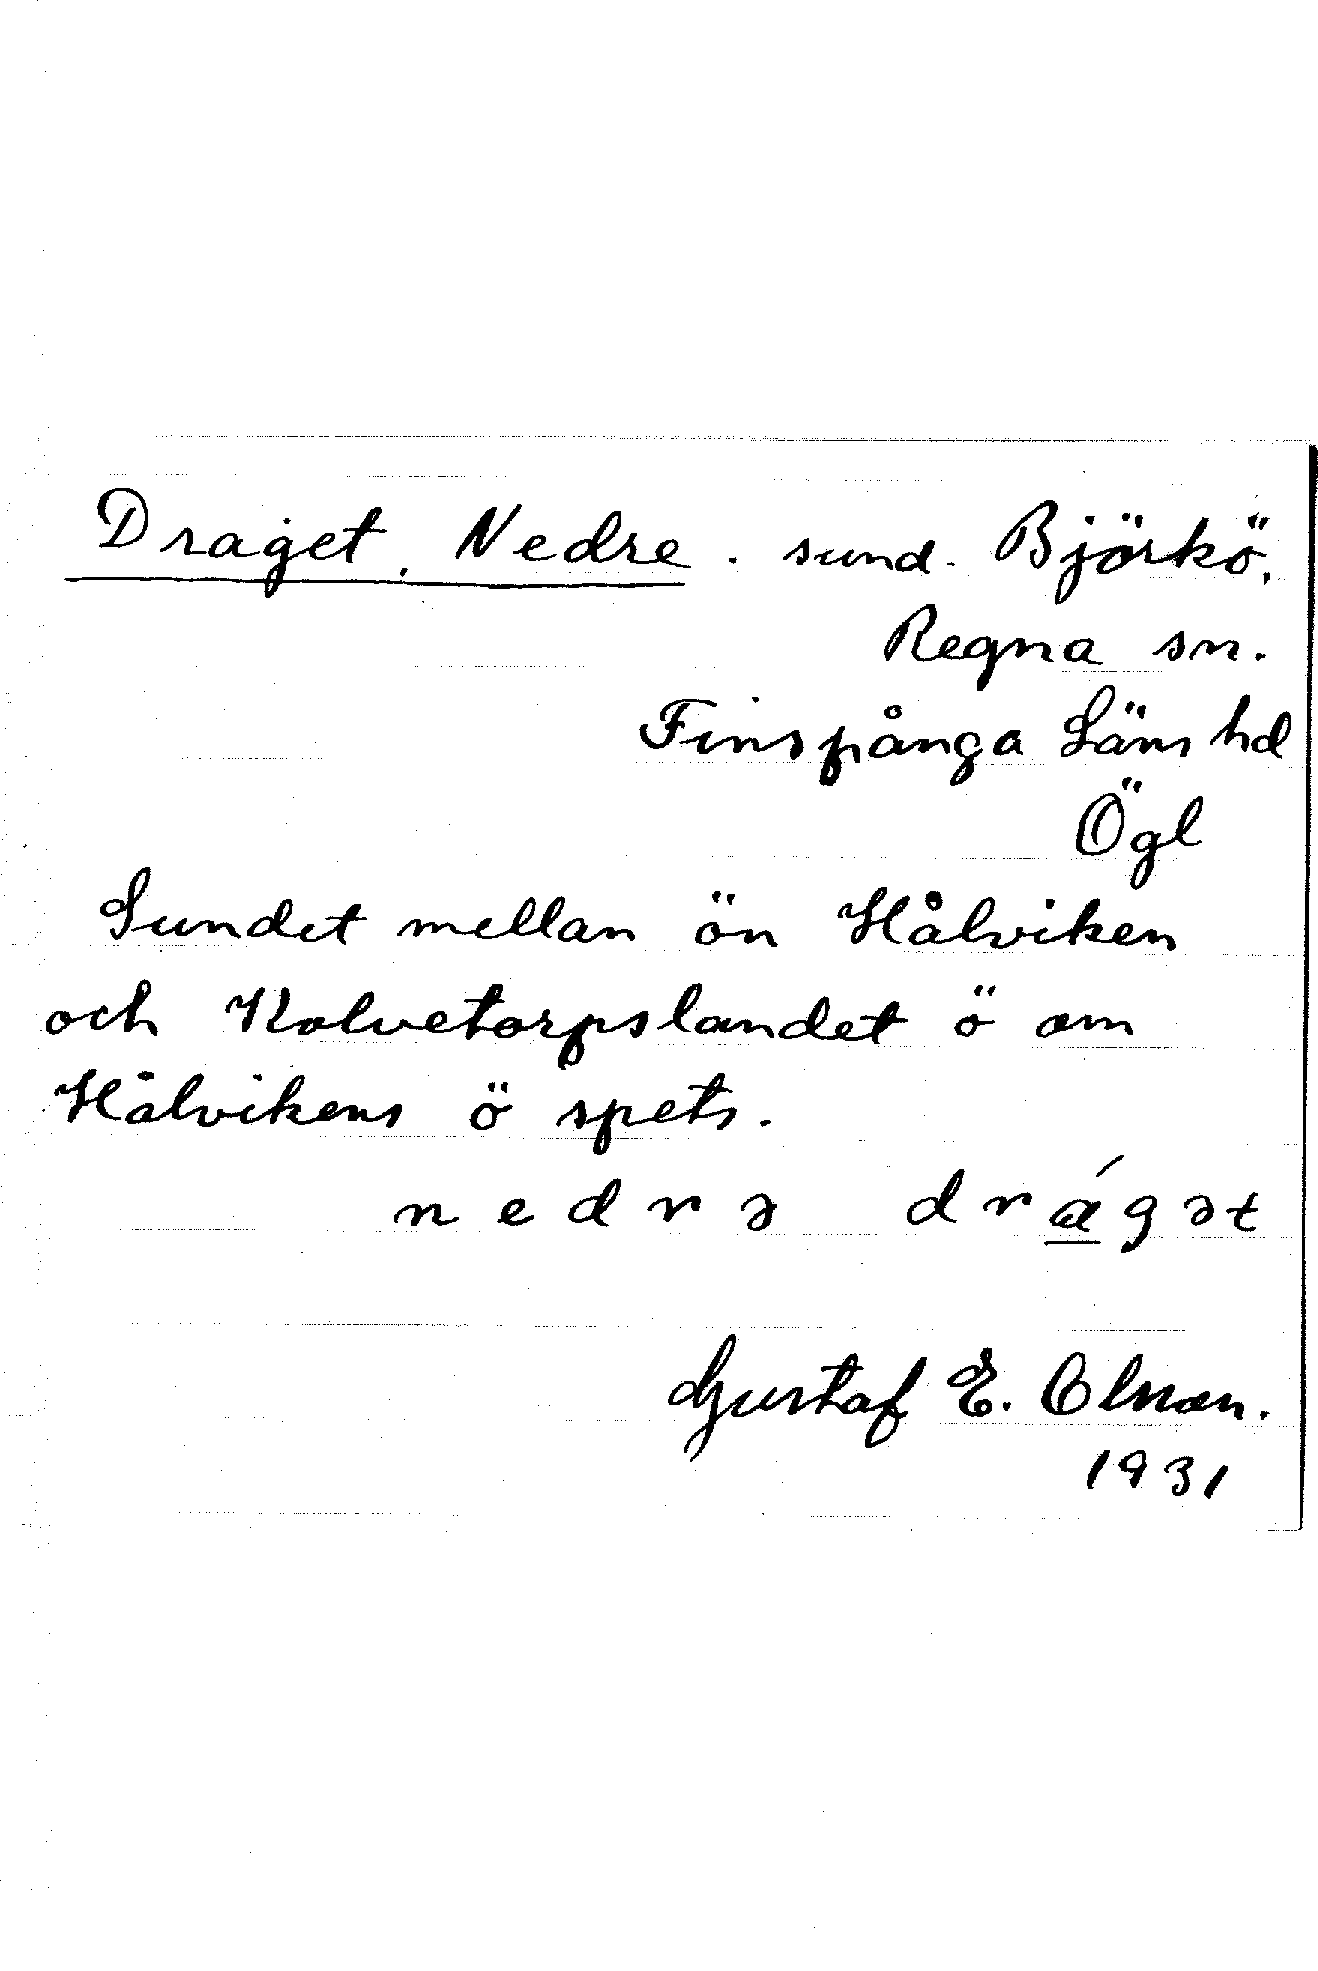 Draget, Nedre. sund. Björkö,
Regna sn.
Finspånga Läns hd
Ögl
Sundet mellan ön Hålviken
och Kolvetorpslandet ö om
Hålvikens ö spets.
nedrə drágət
Gustaf E. Olsson.
1931